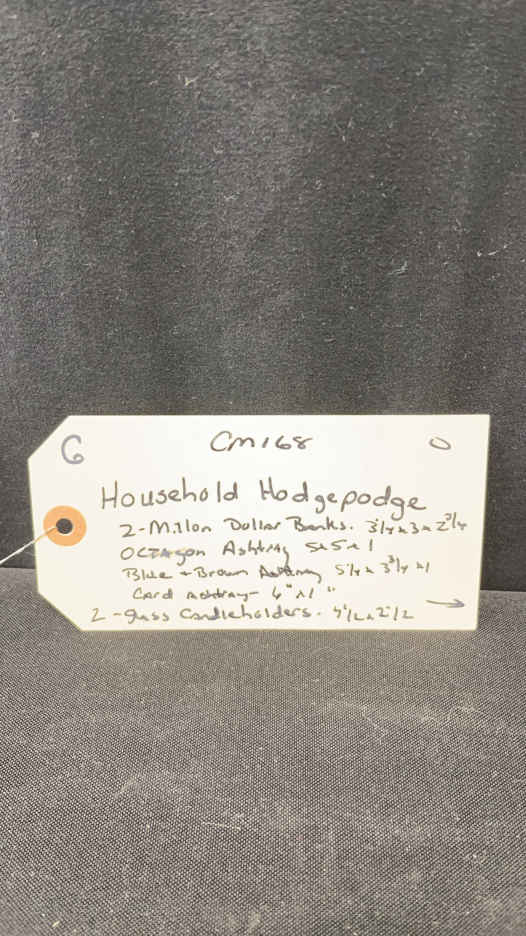 G CM168 0
Household Hodgepodge
2-Millon Dollar Banks. 3 1/4 x 3 x 2 3/4
OCTAgon Ashtray 5x5x1
Blue + Brown Ashtray 5 1/4 x 3 3/4 x1
Card Ashtray- 6" x1"
2 -glass Candleholders. 4 1/2 x 2 1/2 →